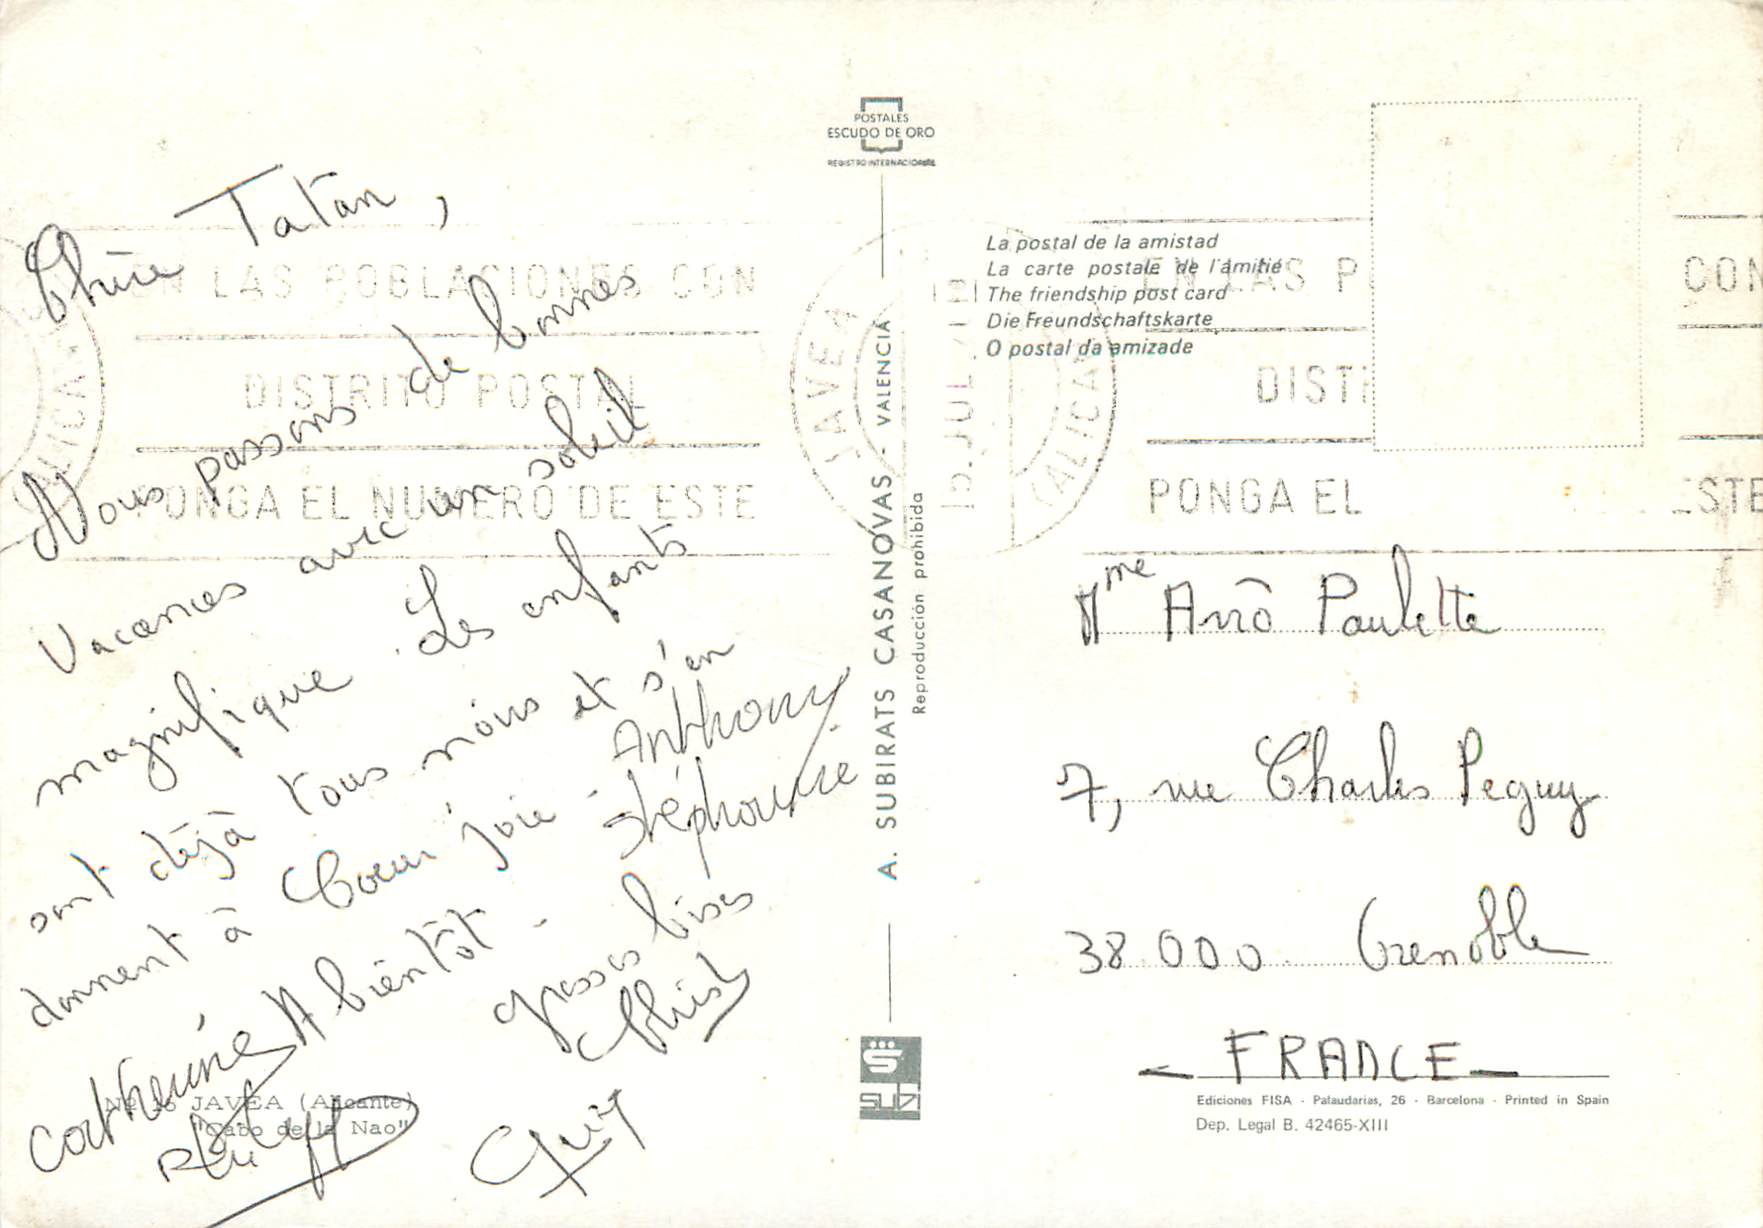 POSTALES
ESCUDO DE ORO
REGISTRO INTERNACIONAL
Chère Tatan,
Nous passons de bonnes
vacances avec un soleil
magnifique. Les enfants
sont déjà tous noirs et s'en
donnent à Coeur joie -
A bientôt -
Anthony
Stéphanie
grosses bises
Christ
Catherine
Guy
Nº 16 JAVEA (Alicante)
"Cabo de la Nao"
EN LAS POBLACIONES CON
DISTRITO POSTAL
PONGA EL NUMERO DE ESTE
ALICA
A. SUBIRATS CASANOVAS - VALENCIA
Reproducción prohibida
SUBI
La postal de la amistad
La carte postale de l'amitié
The friendship post card
Die Freundschaftskarte
O postal da amizade
JAVEA
JUL
(ALICA
EN LAS P CON
DISTR
PONGA EL ESTE
Mme Arrô Paulette
7, rue Charles Peguy
38.000. Grenoble
- FRANCE -
Ediciones FISA - Palaudarias, 26 - Barcelona - Printed in Spain
Dep. Legal B. 42465-XIII